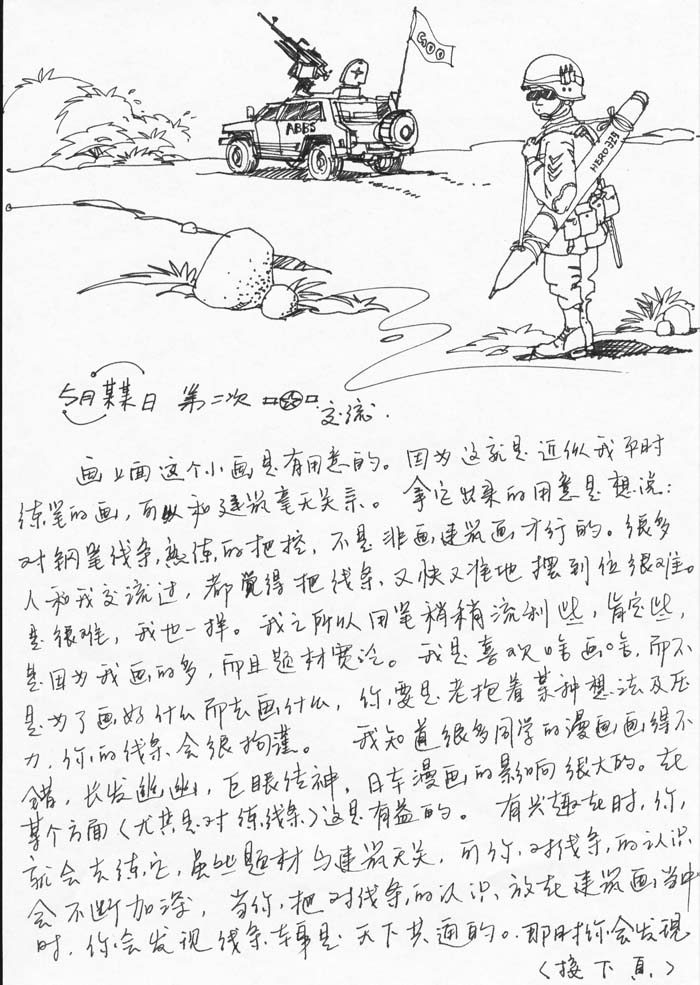 GOO
ABBS
HERO 329
5月某某日 第二次 交流.
画上面这个小画是有用意的。因为这就是近似我平时
练笔的画,而以和建筑毫无关系。拿它出来的用意是想说:
对钢笔线条,熟练的把控,不是非画建筑画才行的。很多
人和我交流过,都觉得把线条又快又准地摆到位很难。
是很难,我也一样。我之所以用笔稍稍流利些,肯定些,
是因为我画的多,而且题材宽泛。我是喜欢啥画啥,而不
是为了画好什么而去画什么,你要是老抱着某种想法及压
力,你的线条会很拘谨。 我知道很多同学的漫画画得不
错,长发幽幽,巨眼传神,日本漫画的影响很大的。在
某个方面(尤其是对练线条)这是有益的。 有兴趣在时,你,
就会去练它,虽些题材与建筑无关,可你,对线条,的认识
会不断加深,当你,把对线条,的认识,放在建筑画当中
时,你会发现线条本事是天下共通的。那时你会发现
(接下页)